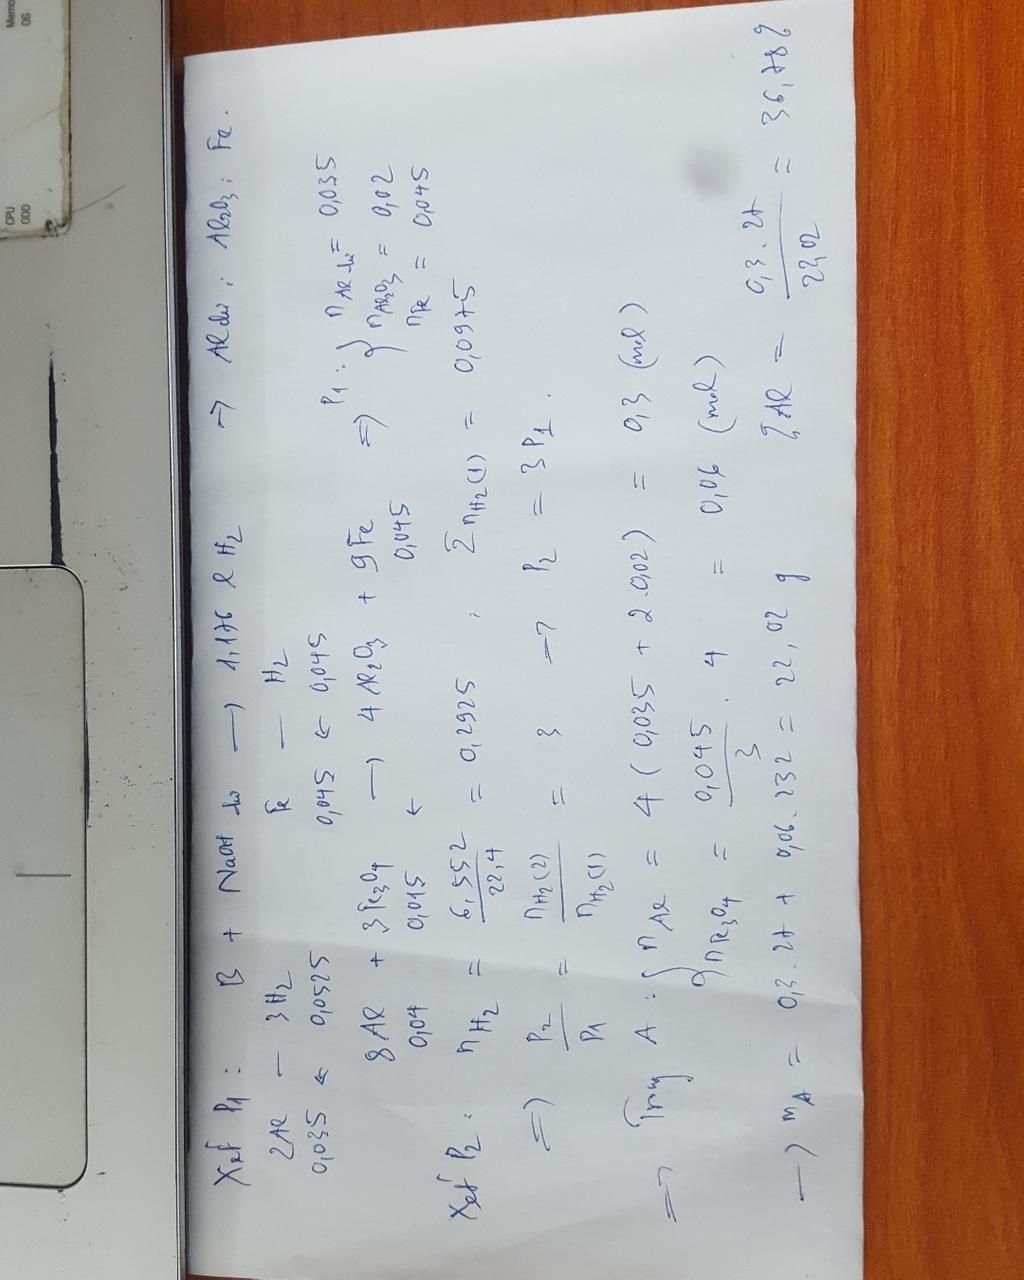 Xét P1 : B + NaOH dư → 1,176 l H2 → Al dư ; Al2O3 ; Fe.
2Al — 3H2 Fe — H2
0,035 ← 0,0525 0,045 ← 0,045
8Al + 3Fe3O4 → 4Al2O3 + 9Fe
0,04 0,015 ← 0,045
⇒ P1 : { nAl dư = 0,035
nAl2O3 = 0,02
nFe = 0,045
Xét P2 : nH2 = 6,552 / 22,4 = 0,2925 ; ΣnH2(1) = 0,0975
⇒ P2 / P1 = nH2(2) / nH2(1) = 3 → P2 = 3P1.
⇒ Trong A : { nAl = 4(0,035 + 2.0,02) = 0,3 (mol)
nFe3O4 = 0,045 / 3 . 4 = 0,06 (mol)
→ mA = 0,3.27 + 0,06.232 = 22,02 g % Al = 0,3.27 / 22,02 = 36,78%
CPU